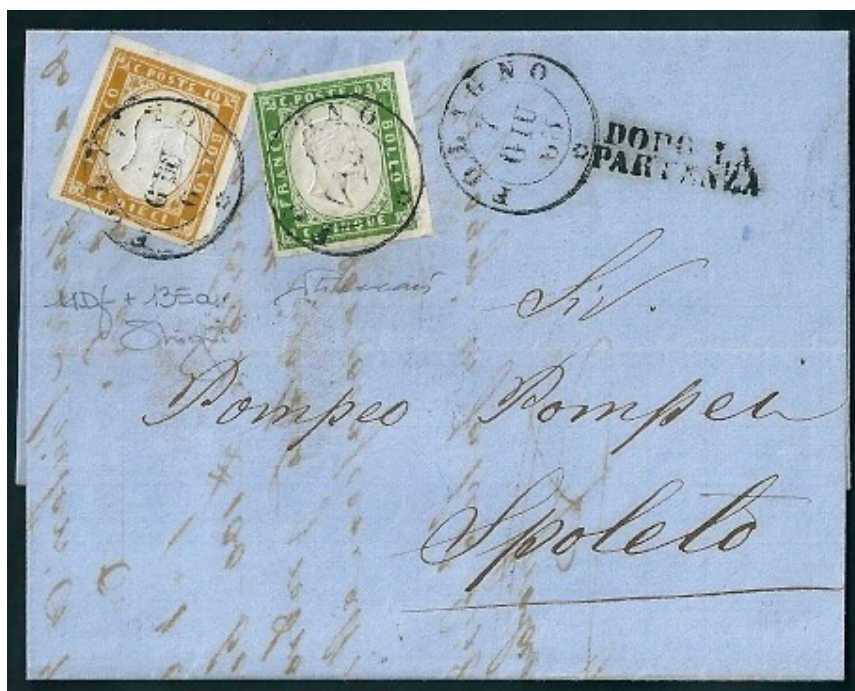 C. POSTE 10
BOLLO
C. DIECI
C. POSTE 05
FRANCO
BOLLO
C. CINQUE
FOLIGNO
7
GIU
DOPO LA
PARTENZA
Sig.
Pompeo Pompei
Spoleto